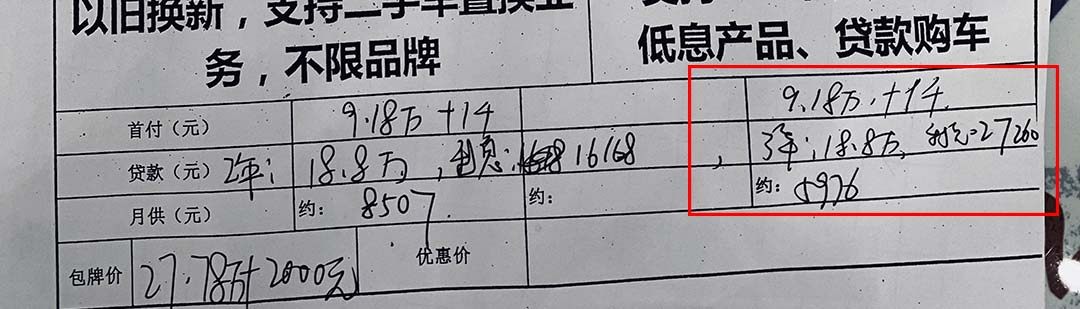 以旧换新，支持二手车置换业
务，不限品牌
低息产品、贷款购车
首付（元） 9.18万+14 9.18万.+14
贷款（元） 2年: 18.8万, 利息: 16168 , 3年: 18.8万, 利息:27260
月供（元） 约: 8507 约: 约: 5976
包牌价 27.78万+2000元 优惠价